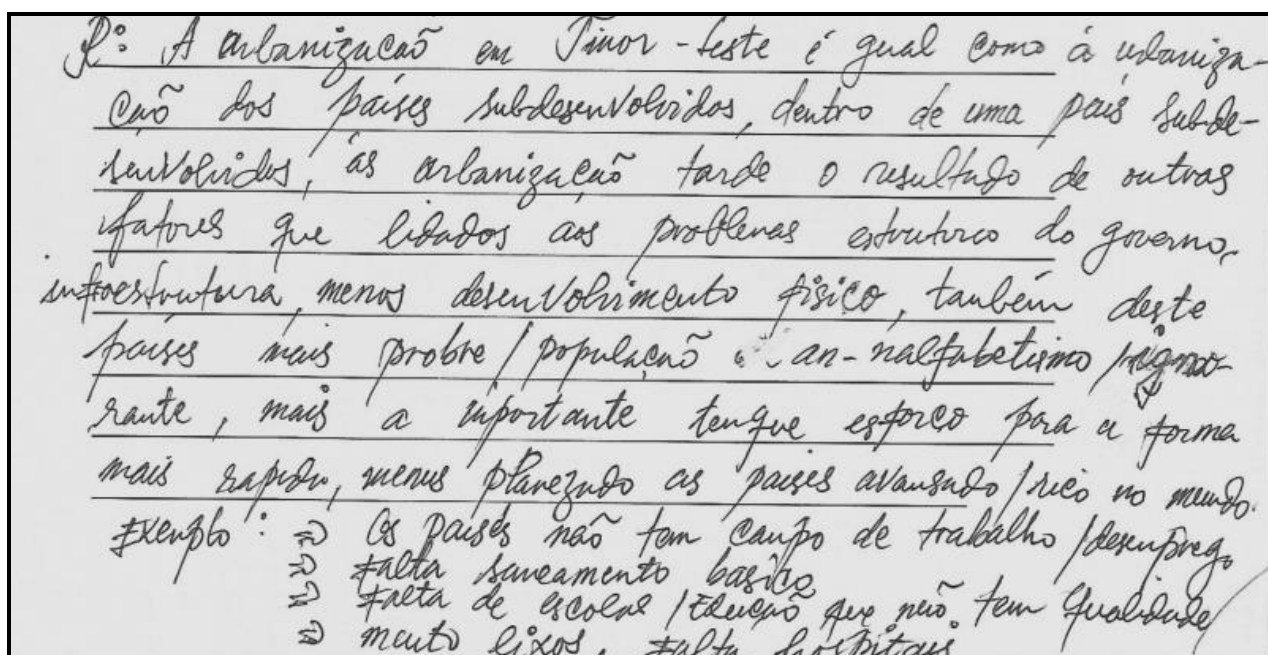 R: A urbanizacaõ em Timor-Leste é gual como à urbaniza-
caõ dos países subdesenvolvidos, dentro de uma país subde-
senvolvidos, as urbanizacaõ tarde o resultado de outros
fatores que lidados aos problemas estruturco do governo,
infroestrutura, menos desenvolvimento físico, também deste
países mais probre/populaçaõ an-nalfabetismo/
rante, mais a importante tenque esforco para a forma
mais rapido, menus planezado as paises avansado/rico no mundo.
Exemplo: Os países não tem campo de trabalho/desemprego
Falta saneamento basico
Falta de escolas/Educaçaõ que não tem qualidade/
muito lixos, Falta hospitais.